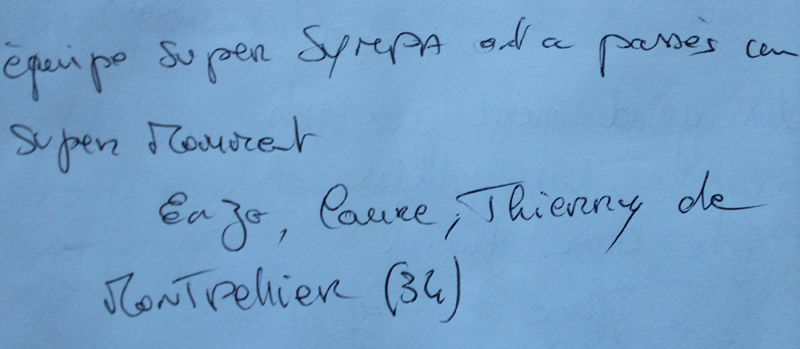 équipe super sympa on a passés un
super moment
Enzo, Laure, Thierry de
Montpellier (34)